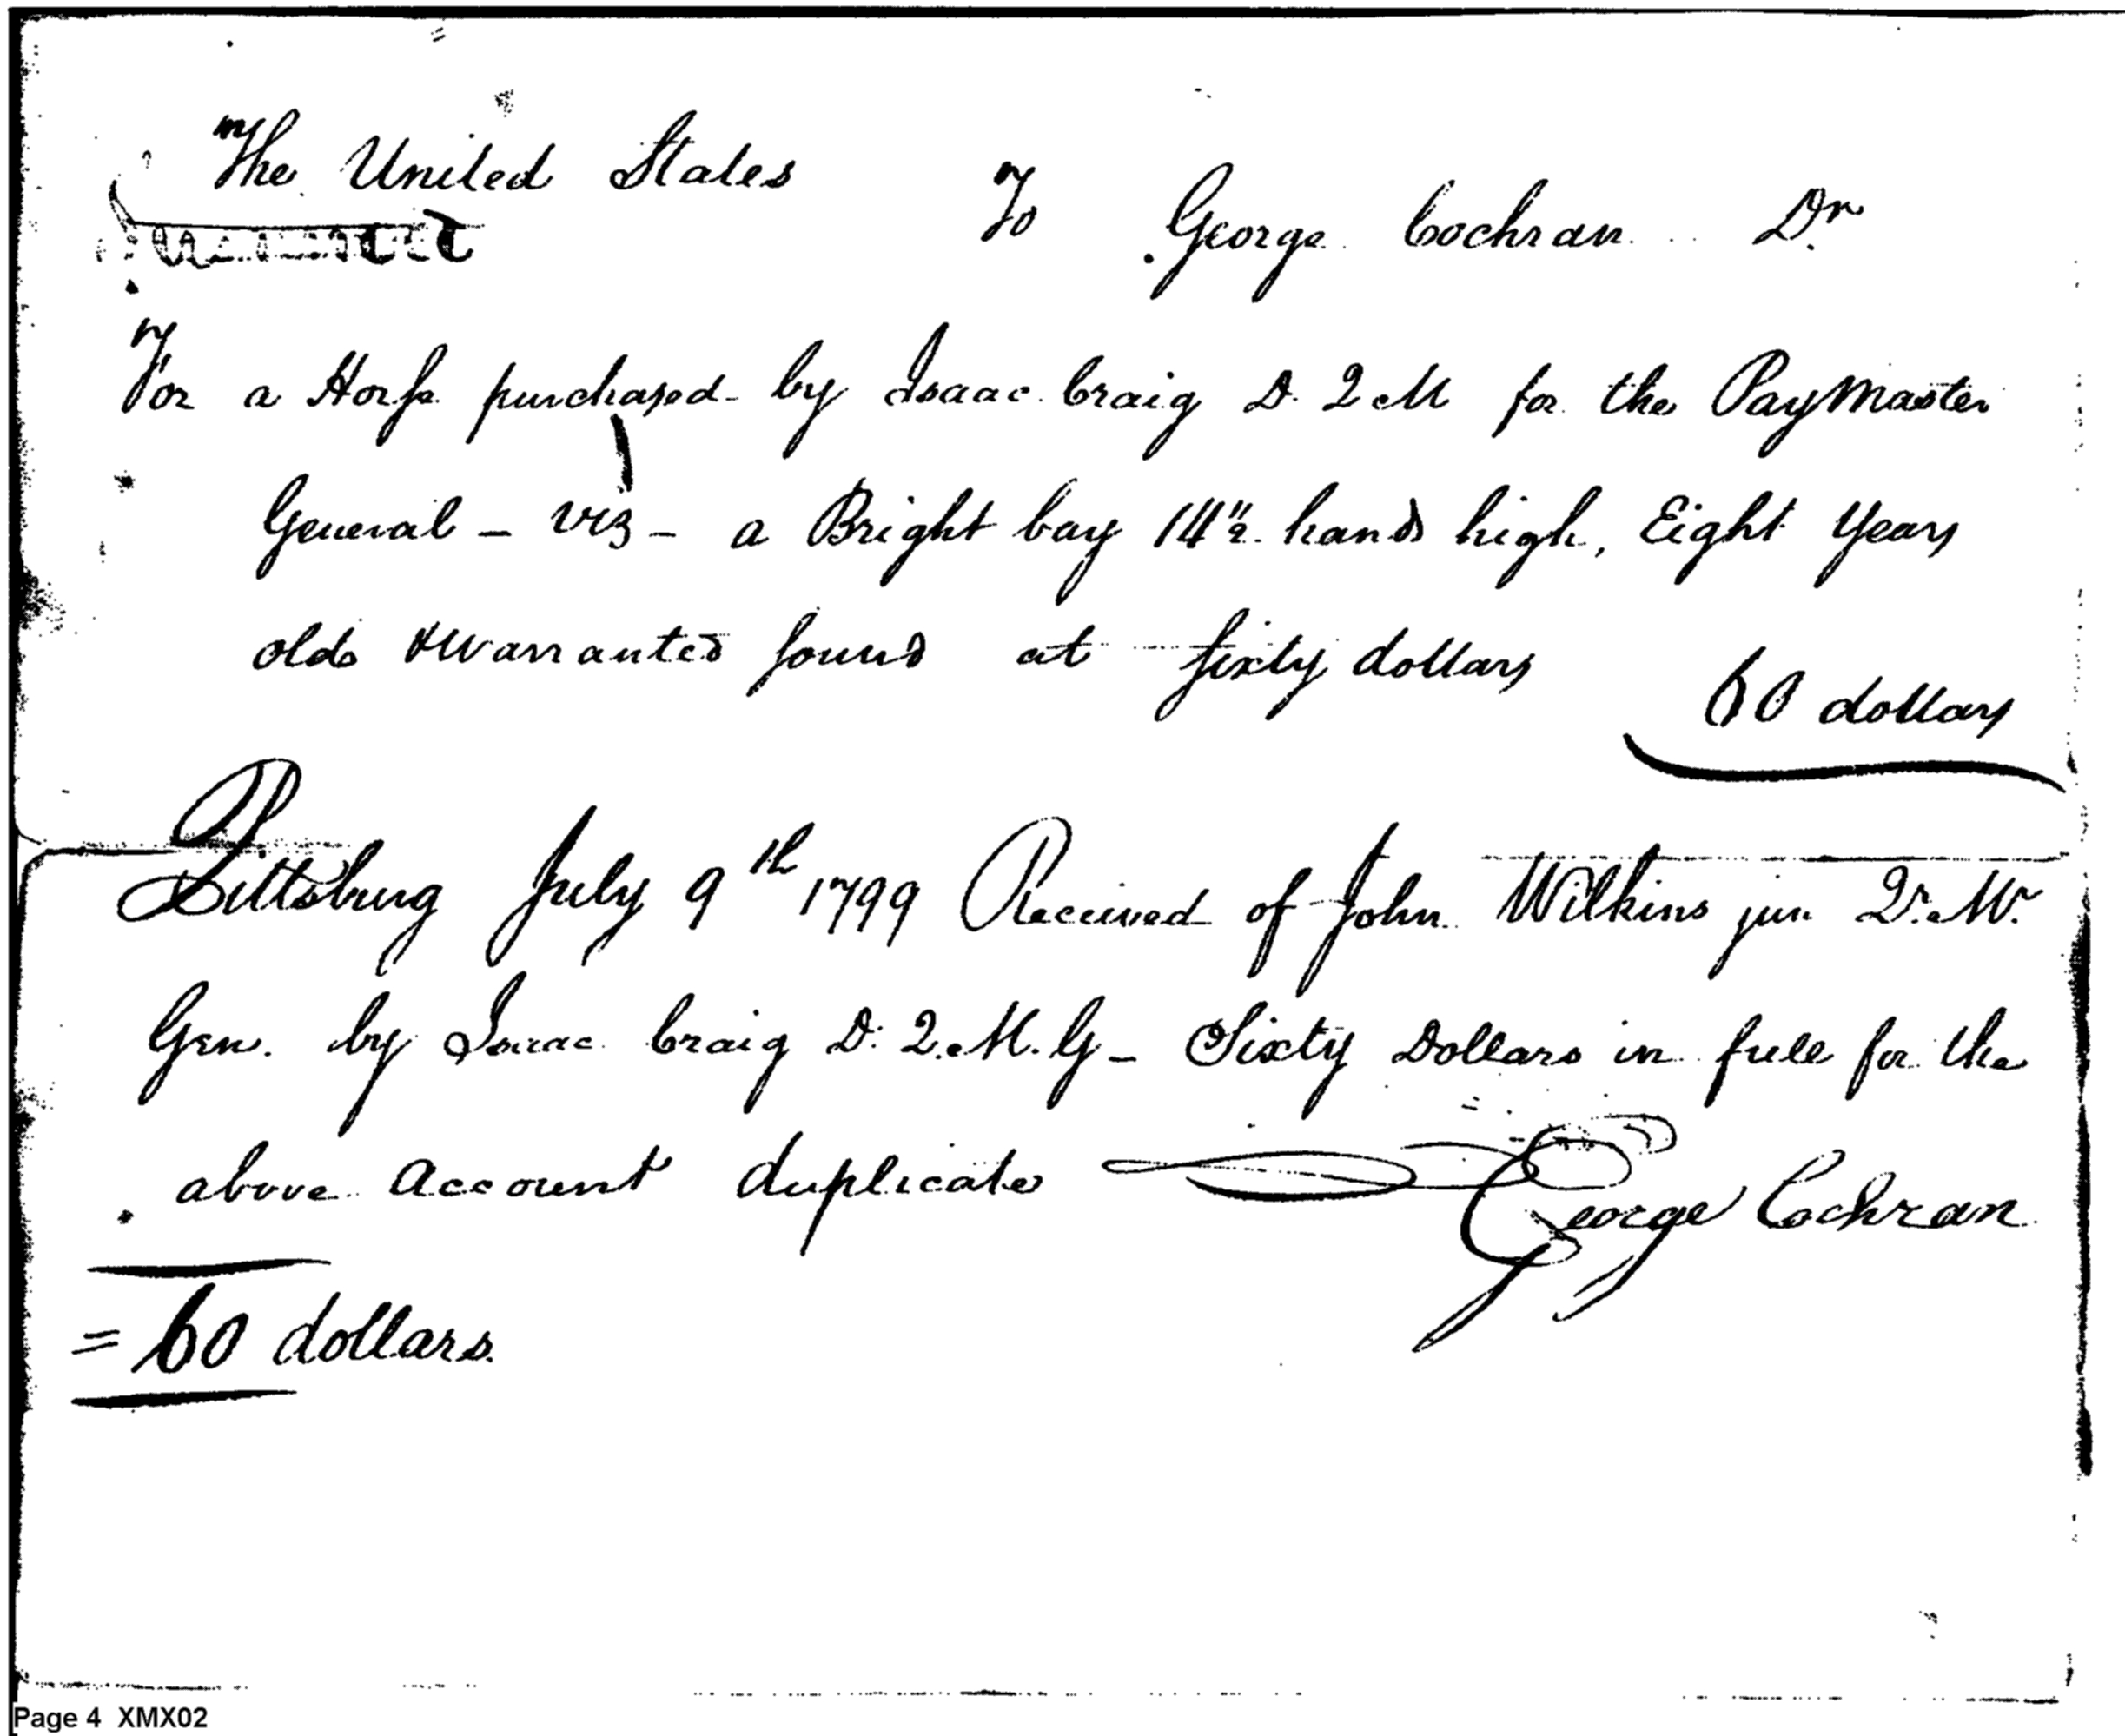 The United States To George Cochran Dr
For a Horse purchased by Isaac Craig D. Q M for the PayMaster
General - viz - a Bright bay 14½ hands high, Eight Years
old & Warranted sound at sixty dollars
60 dollars
Pittsburg July 9th 1799 Received of John Wilkins jun Qr. Mr.
Gen. by Isaac Craig D. Q. M. G - Sixty Dollars in full for the
above account duplicate
George Cochran
= 60 dollars.
Page 4 XMX02